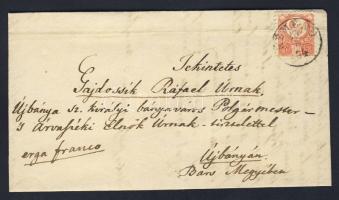 Tekintetes
Gajdossik Ráfael Úrnak,
Újbánya sz. királyi bányaváros Polgármester-
s Árvaszéki Elnök Úrnak tisztelettel
erga franco
Újbányán
Bars Megyében